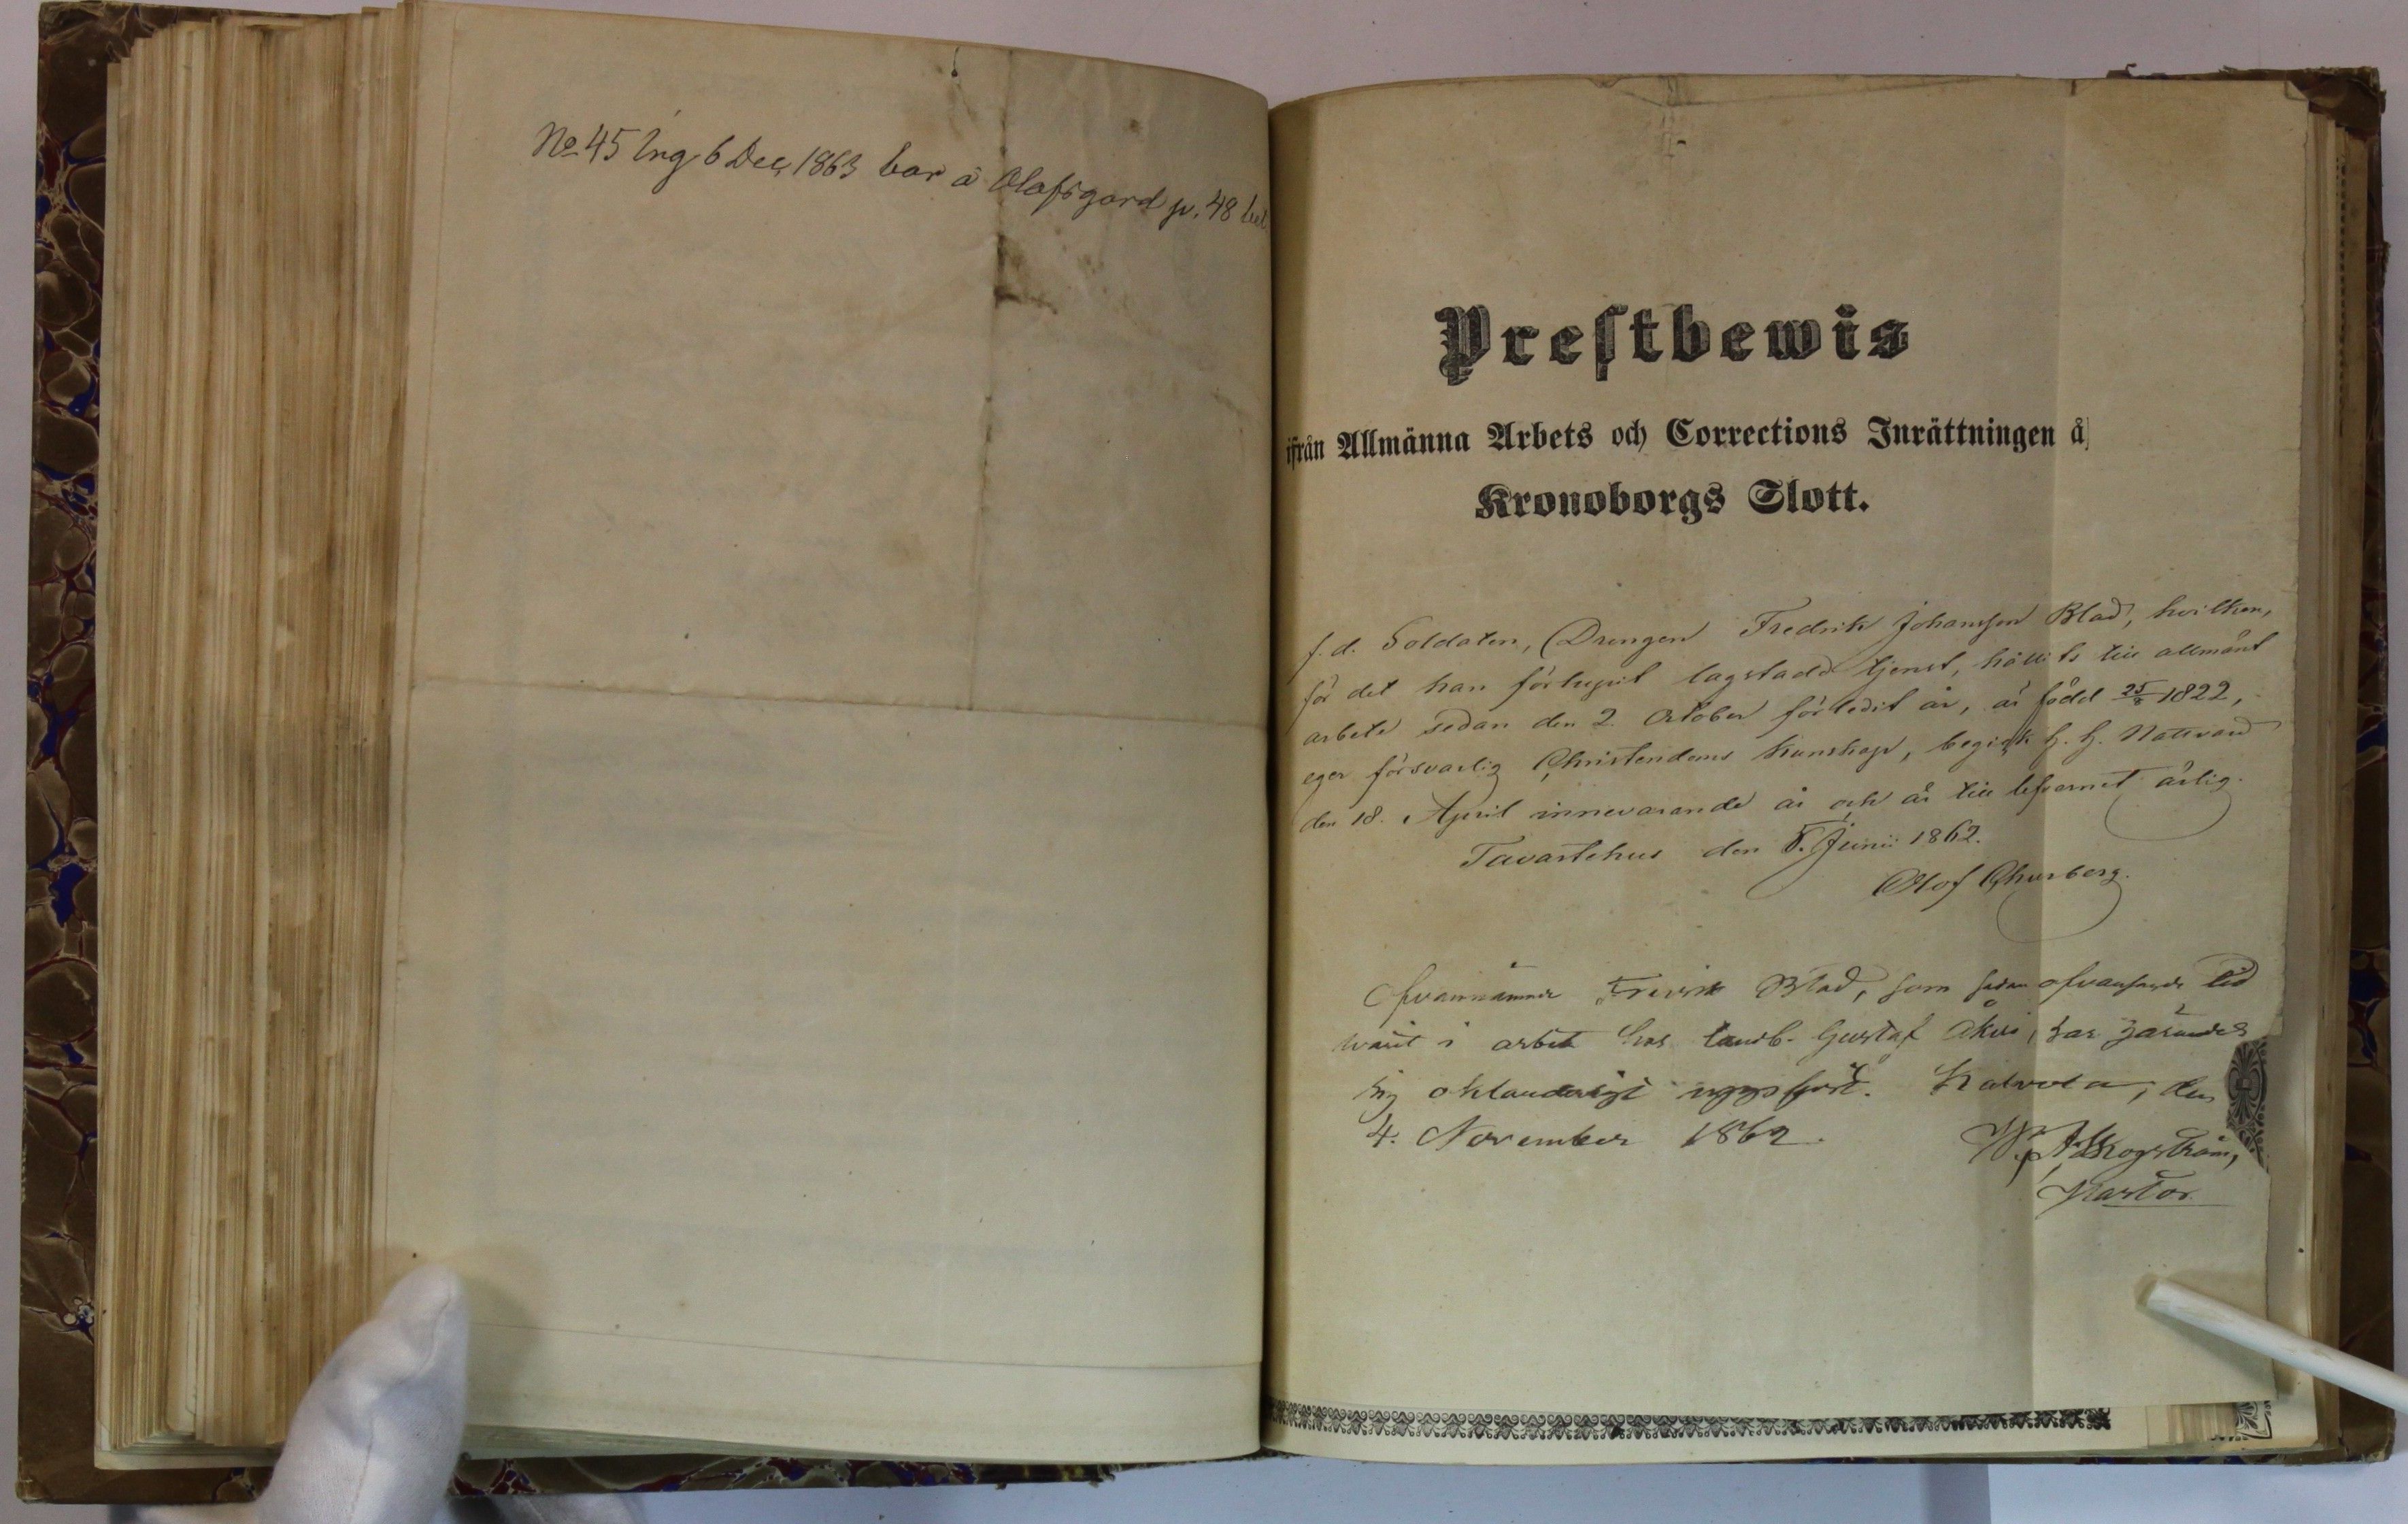 No 45 Ing 6 Dec, 1863 bor å Olofsgård p. 48
Prestbewis
ifrån Allmänna Arbets och Corrections Inrättningen å
Kronoborgs Slott.
f.d. Soldaten, Drengen Fredrik Johansson Blad, hvilken,
för det han förlupit lagstadd tjenst, hållits till allmänt
arbete sedan den 2 October förledit år, är född 25/8 1822,
eger försvarlig Christendoms kunskap, begick H. H. Nattvard
den 18. April innevarande år och är till lefvernet ärlig.
Tavastehus den 5. Junii 1862.
Olof Churberg.
Ofvannämnde Fredrik Blad, som sedan ofvansagde tid
warit i arbete hos landb. Gustaf har
sig oklanderligt uppfört. Kalvola, den
4. November 1862.
Skogström,
Pastor